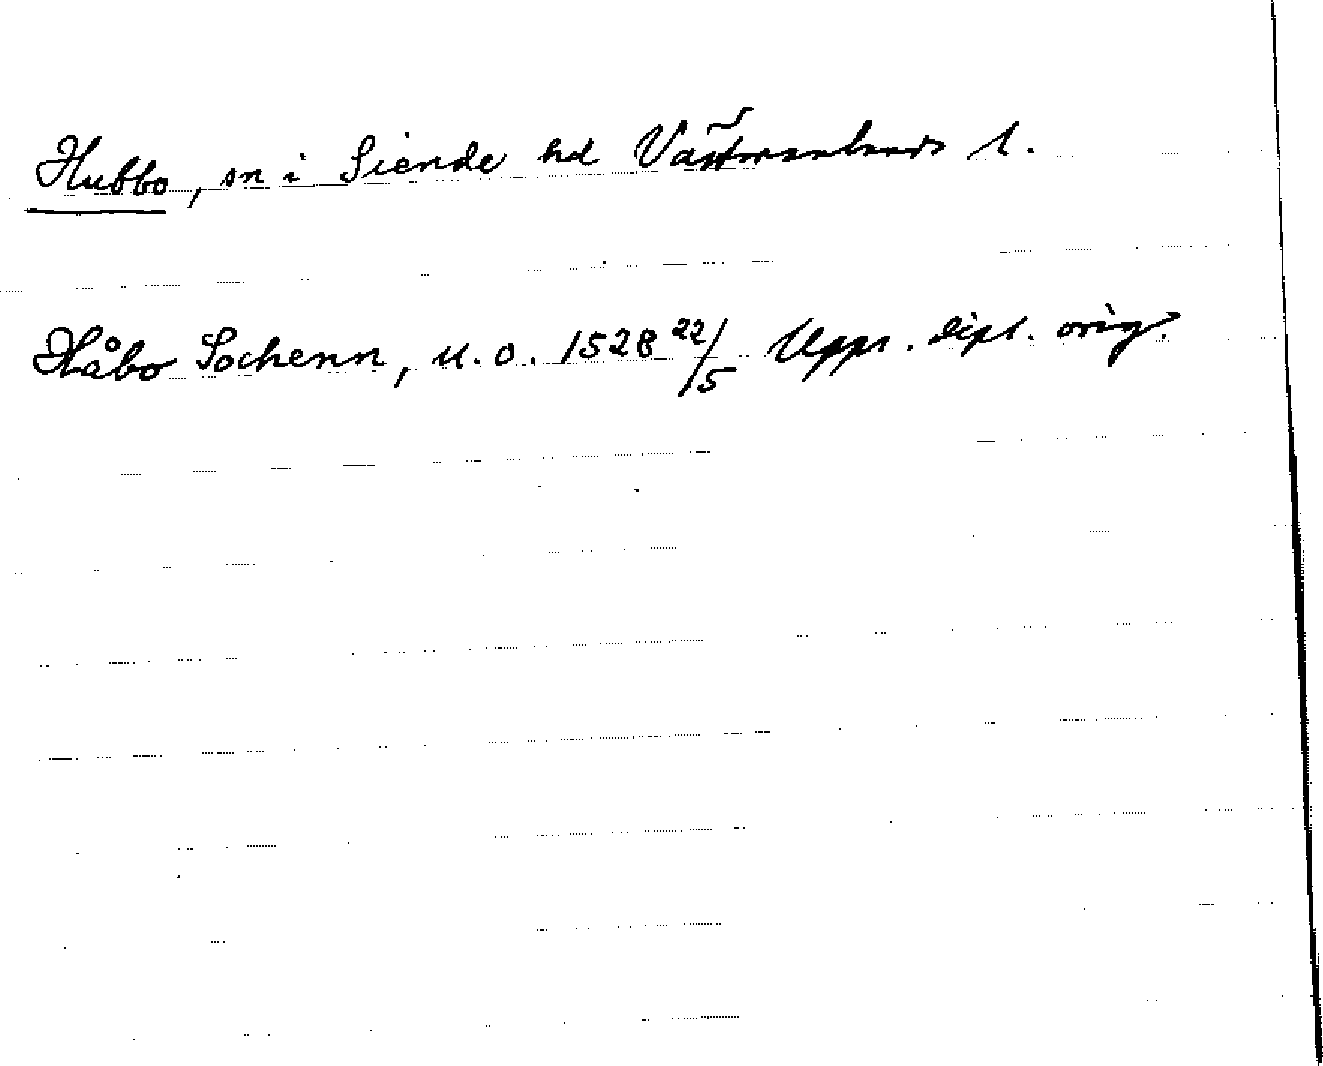 Hubbo, sn i Siende hd Västmanlands l.
Håbo Sochenn, u.o. 1528 22/5 Upps. dipl. orig.